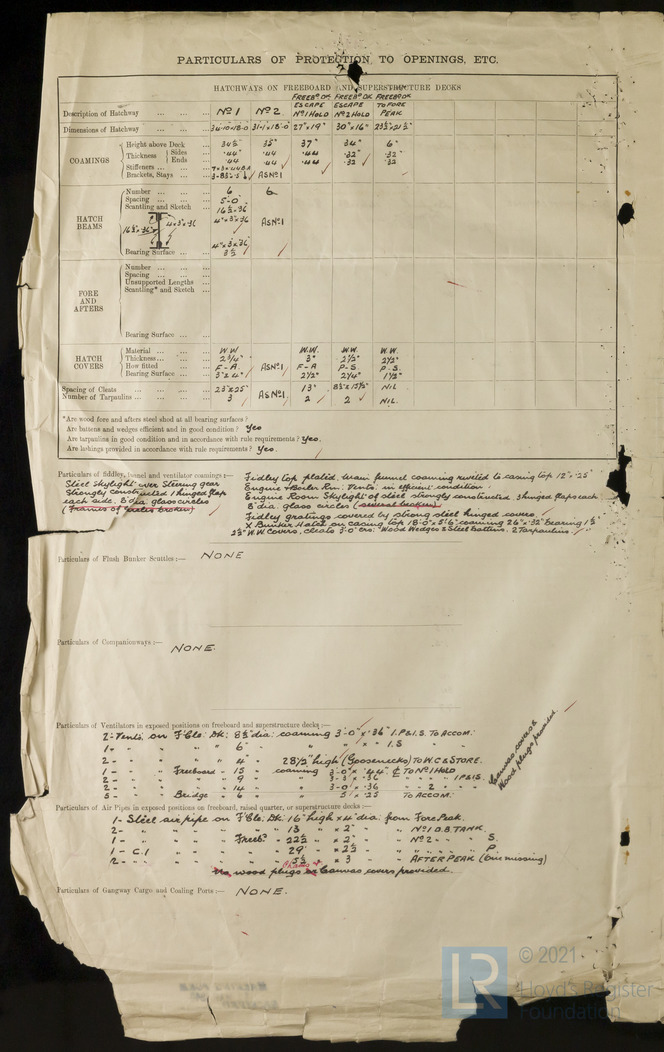 PARTICULARS OF PROTECTION TO OPENINGS, ETC.
HATCHWAYS ON FREEBOARD AND SUPERSTRUCTURE DECKS
Description of Hatchway ... No 1 No 2. FREEBD DK. ESCAPE No 1 HOLD FREEBD DK ESCAPE No 2 HOLD FREEBD DK TO FORE PEAK
Dimensions of Hatchway ... 34-0×18-0 31-1×18-0 27"×19" 30"×16" 23½"×21½"
COAMINGS
Height above Deck 34½ 35" 37" 34" 6"
Thickness Sides .44" .44 .44 .32" .32"
Ends .44 .44 .44 .32 .32
Stiffeners
Brackets, Stays AS No 1
HATCH BEAMS
Number 6 6
Spacing 5-0
Scantling and Sketch 16½×.36
4"×3"×.36 AS No 1
16½×.36" 4×3"×.36
4"×3"×.36
Bearing Surface 3½
FORE AND AFTERS
Number
Spacing
Unsupported Lengths
Scantling* and Sketch
Bearing Surface
HATCH COVERS
Material W.W. W.W. W.W. W.W.
Thickness 2¾" 3" 2½" 2½"
How fitted F-A AS No 1 F-A P-S. P-S.
Bearing Surface 3"×4" 2½" 2¼" 1½"
Spacing of Cleats 23"×25" AS No 1. 13" 8½"×13½" NIL
Number of Tarpaulins 3 2 2 NIL.
*Are wood fore and afters steel shod at all bearing surfaces?
Are battens and wedges efficient and in good condition? Yes
Are tarpaulins in good condition and in accordance with rule requirements? Yes.
Are lashings provided in accordance with rule requirements? Yes.
Particulars of fiddley, funnel and ventilator coamings:— Fidley top plated, main funnel coaming riveted to casing top 12"×.25"
Steel Skylight over Steering gear Engine & Boiler Rm. Vents. in efficient condition.
Strongly constructed 1 hinged flap Engine Room Skylight of steel strongly constructed 3 hinged flaps each
each side, 8" dia. glass circles 8" dia. glass circles (several broken)
(Frames of circles broken) Fidley gratings covered by strong steel hinged covers.
X Bunker Hatch on casing top 18'-0"×5'-6" coaming 26"×.32" Bearing 1½"
2½" W.W. Covers, cleats 3'-0" ers. Wood Wedges & Steel Battens. 2 Tarpaulins.
Particulars of Flush Bunker Scuttles:— NONE
Particulars of Companionways:— NONE.
Particulars of Ventilators in exposed positions on freeboard and superstructure decks:—
2- Vents. on F'cle. Dk. 8½" dia. coaming 3'-0"×.36" 1.P.&1.S. TO ACCOM:
1- " " " 6" " " × " 1.S "
2- " " " 4" " 28½" high (Goosenecks) TO W.C & STORE.
1- " Freeboard - 15 " coaming 3'-0"×.44" ℄ TO No 1 HOLD
2- " " - 9 " " 3-3×.36 " " " 1P&1S.
2- " " - 14 " " 3-0×.36 " " 2 "
5- " Bridge - 6 " " 5'×.25 TO ACCOM:
Canvas covers &
Wood plugs provided.
Particulars of Air Pipes in exposed positions on freeboard, raised quarter, or superstructure decks:—
1- Steel air pipe on F'cle. Dk. 16" high × 4" dia. from Fore Peak.
2- " " " " " 13 " × 2" " " No 1 D.B. TANK.
1- " " " Freebd " 22½ " × 2" " " No 2 - " S.
1- C.I " " " 29 " × 2½ " " " " P.
2- " " " " × 3 " " AFTER PEAK (One missing)
No wood plugs or Canvas covers provided.
Particulars of Gangway Cargo and Coaling Ports:— NONE.
LR
© 2021
Lloyd's Register
Foundation